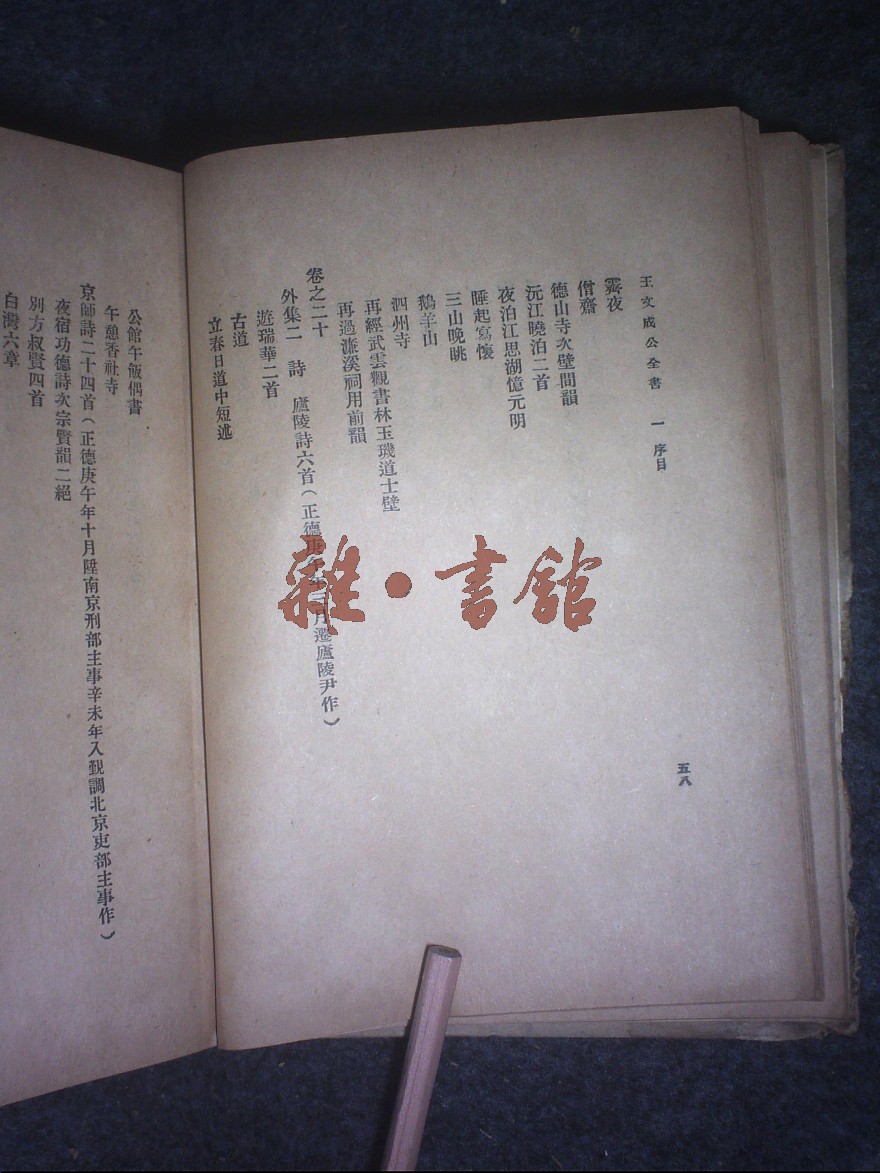 王文成公全書 一 序目
五八
霽夜
僧齋
德山寺次壁間韻
沅江曉泊二首
夜泊江思湖憶元明
睡起寫懷
三山晚眺
鵝羊山
泗州寺
再經武雲觀書林玉璣道士壁
再過濂溪祠用前韻
卷之二十
外集二 詩 廬陵詩六首（正德庚午年三月遷廬陵尹作）
遊瑞華二首
古道
立春日道中短述
公館午飯偶書
午憩香社寺
京師詩二十四首（正德庚午年十月陞南京刑部主事辛未年入覲調北京吏部主事作）
夜宿功德詩次宗賢韻二絕
別方叔賢四首
白灣六章
雜·書館